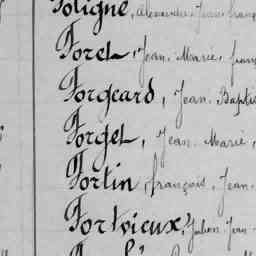 Poligné, Alexandre, Jean, franç
Forel, Jean, Marie, franç
Forgeard, Jean Baptis
Forget, Jean Marie,
Fortin, françois, Jean
Fortvieux, Julien Jean